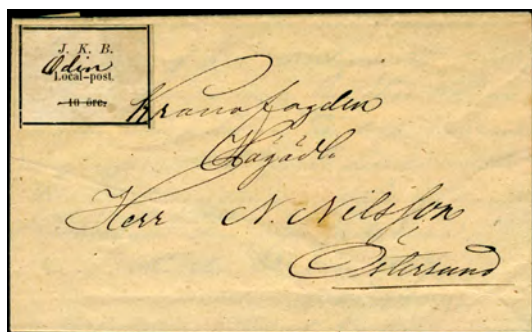 J. K. B.
Odin
Local-post.
10 öre.
Kronofogden
Högädl.
Herr N. Nilsson
Östersund